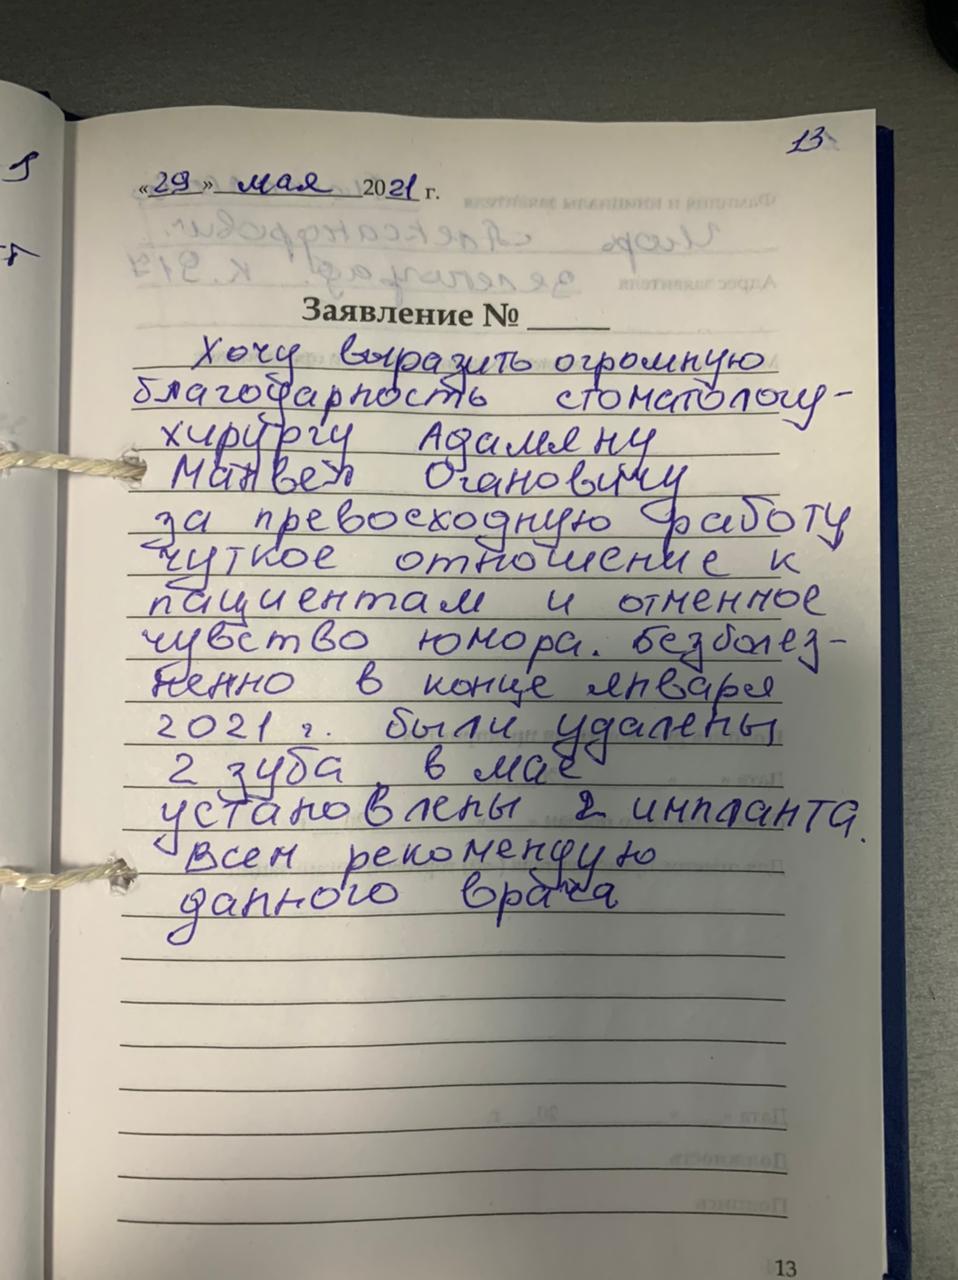 13
«29» мая 2021 г.
Заявление №
Хочу выразить огромную
благодарность стоматологу-
хирургу Адамяну
Манвел Огановичу
за превосходную работу
чуткое отношение к
пациентам и отменное
чувство юмора. Безболез-
ненно в конце января
2021 г. были удалены
2 зуба, в мае
установлены 2 импланта.
Всем рекомендую
данного врача
13